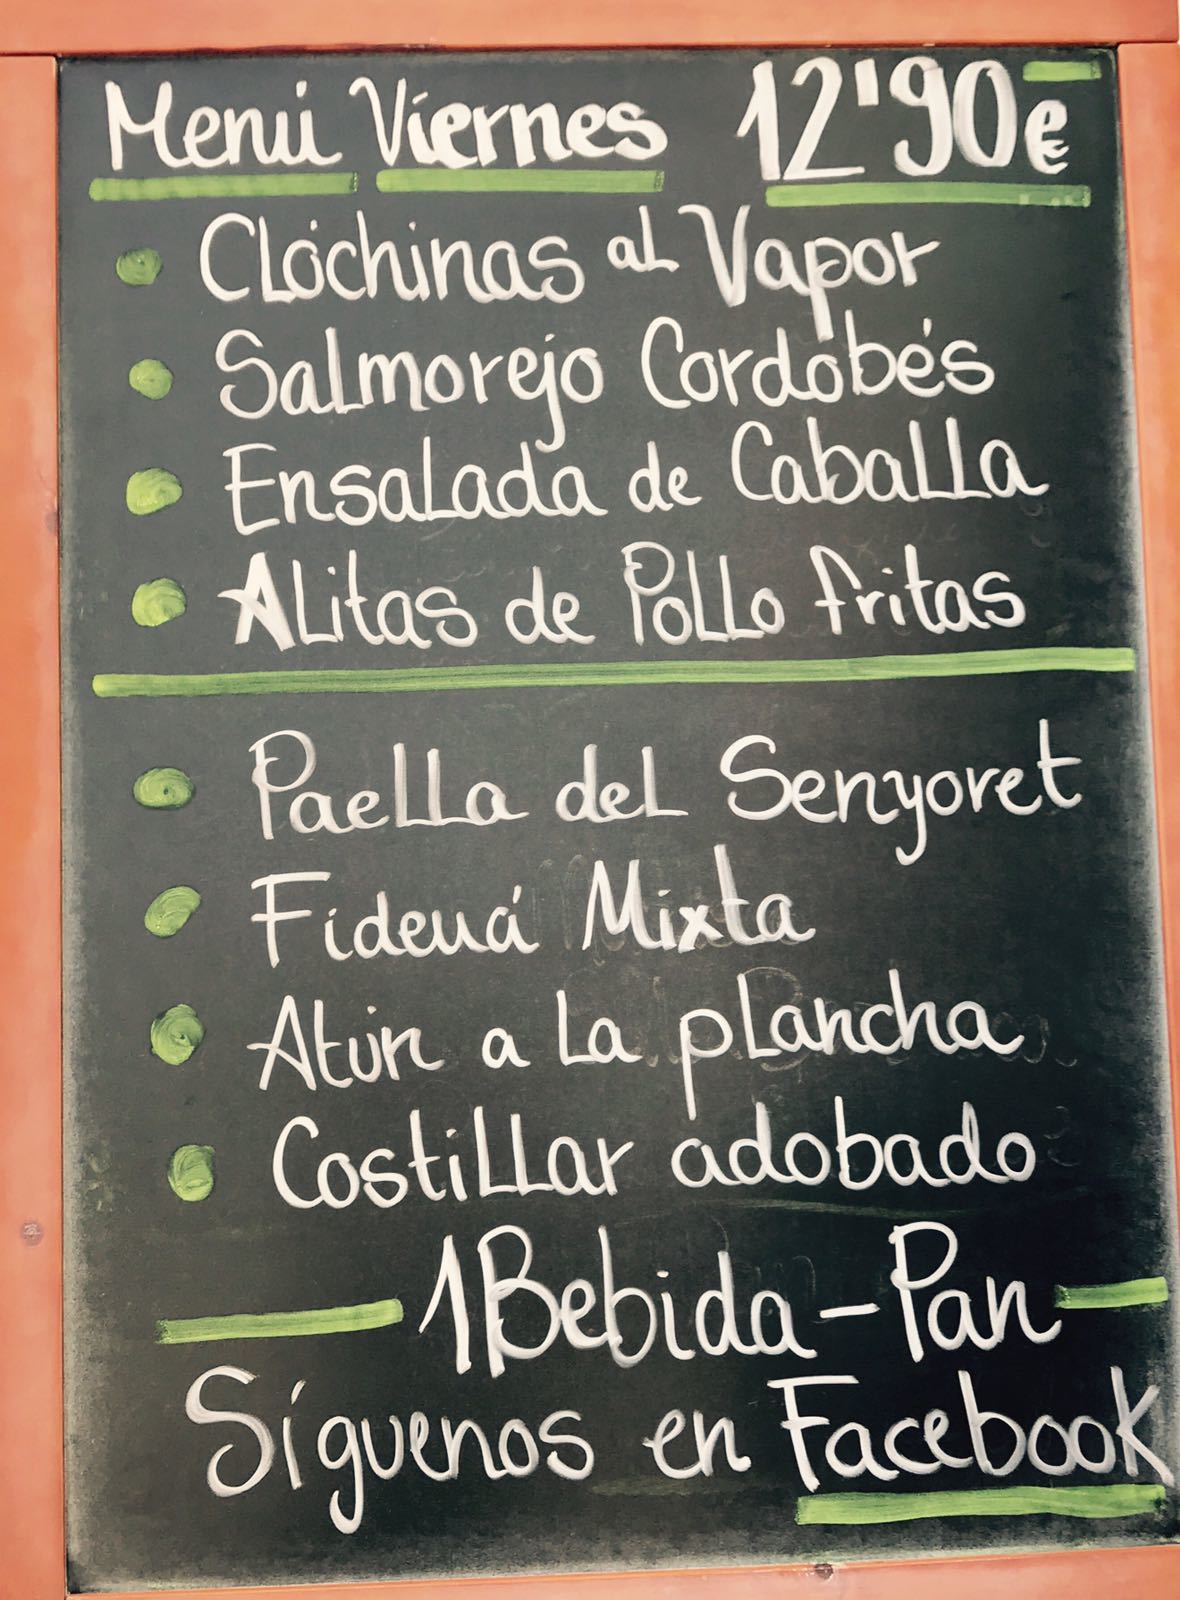 Menú Viernes 12'90€
Clóchinas al Vapor
Salmorejo Cordobés
Ensalada de Caballa
Alitas de Pollo fritas
Paella del Senyoret
Fideuá Mixta
Atún a la plancha
Costillar adobado
1 Bebida - Pan
Síguenos en Facebook